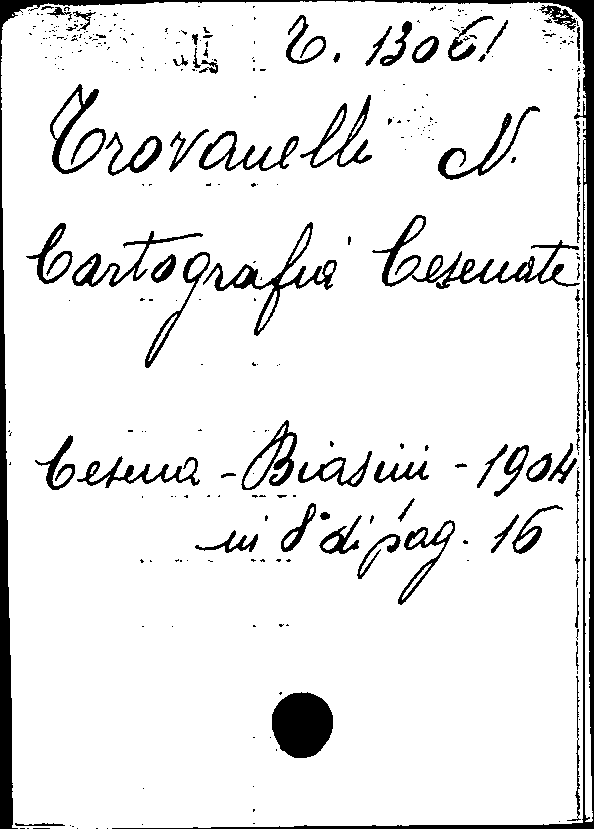 T. 13061
Trovanelli N.
Cartografia Cesenate
Cesena - Biasini - 1904
in 8° di pag. 16